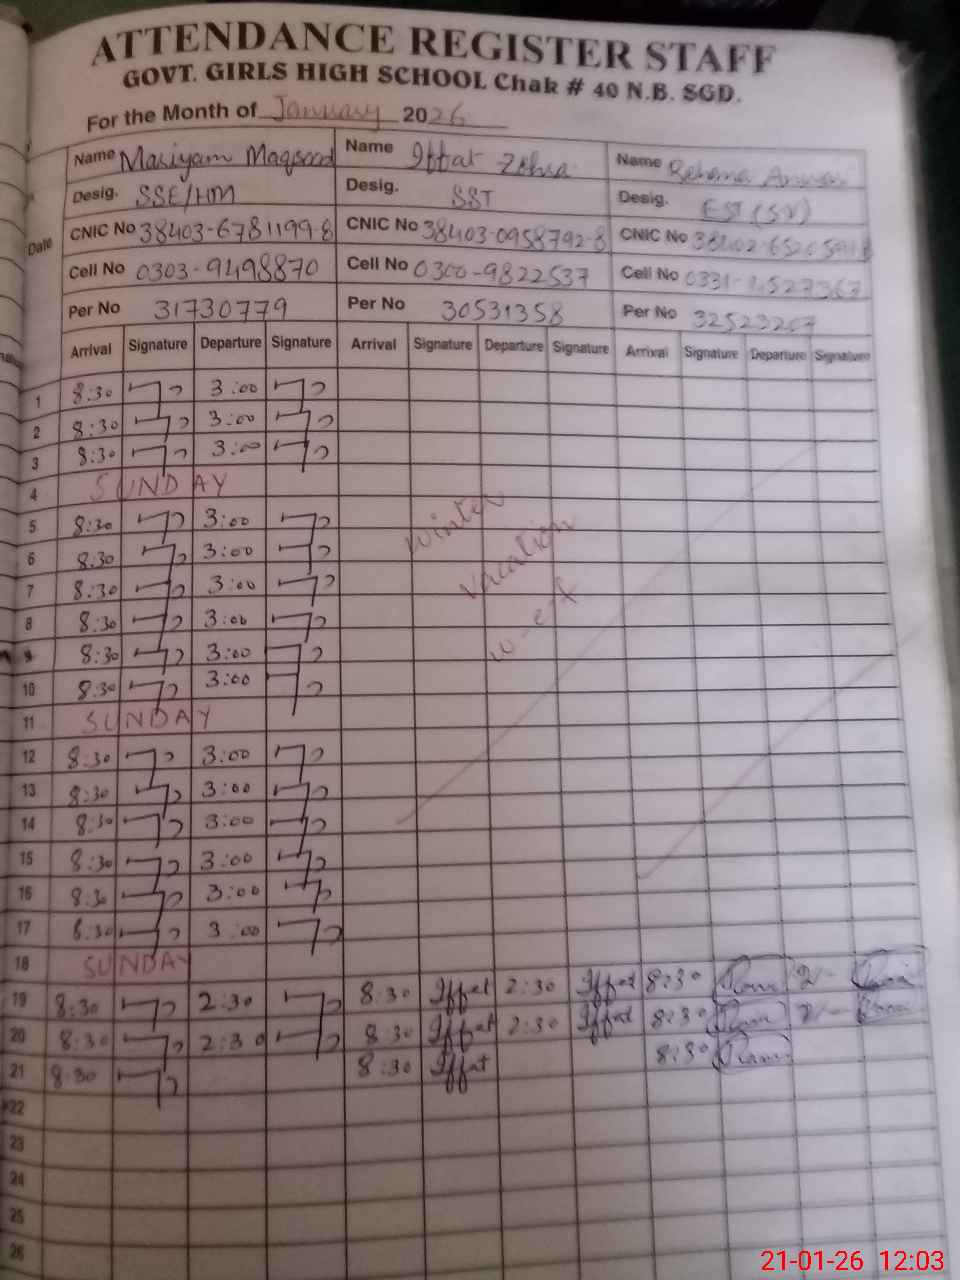 ATTENDANCE REGISTER STAFF
GOVT. GIRLS HIGH SCHOOL Chak # 40 N.B. SGD.
For the Month of January 2026
Date
Name Mariyam Maqsood Name Iffat Zehra Name Rehana
Desig. SSE/HM Desig. SST Desig. EST (SV)
CNIC No 38403-6781199-8 CNIC No 38403-0958792-8 CNIC No
Cell No 0303-9498870 Cell No 0300-9822537 Cell No
Per No 31730779 Per No 30531358 Per No
Arrival Signature Departure Signature Arrival Signature Departure Signature Arrival Signature Departure Signature
1 8:30 3:00
2 8:30 3:00
3 8:30 3:00
4 SUNDAY
5 8:30 3:00
6 8:30 3:00
7 8:30 3:00
8 8:30 3:00
9 8:30 3:00
10 8:30 3:00
winter
vacation
w-e-f
11 SUNDAY
12 8:30 3:00
13 8:30 3:00
14 8:30 3:00
15 8:30 3:00
16 8:30 3:00
17 8:30 3:00
18 SUNDAY
19 8:30 2:30 8:30 Iffat 2:30 Iffat 8:30
20 8:30 2:30 8:30 Iffat 2:30 Iffat 8:30
21 8:30 8:30 Iffat 8:30
22
23
24
25
26
21-01-26 12:03